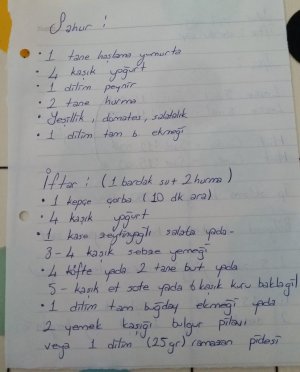 Sahur :
• 1 tane haşlama yumurta
• 4 kaşık yoğurt
• 1 dilim peynir
• 2 tane hurma
• Yeşillik, domates, salatalık
• 1 dilim tam b. ekmeği
İftar : (1 bardak su + 2 hurma)
• 1 kepçe çorba (10 dk ara)
• 4 kaşık yoğurt
• 1 kase zeytinyağlı salata yada-
3-4 kaşık sebze yemeği
• 4 köfte yada 2 tane but yada
5- kaşık et sote yada 6 kaşık kuru baklagil
• 1 dilim tam buğday ekmeği yada
2 yemek kaşığı bulgur pilavı
veya 1 dilim (25gr) ramazan pidesi